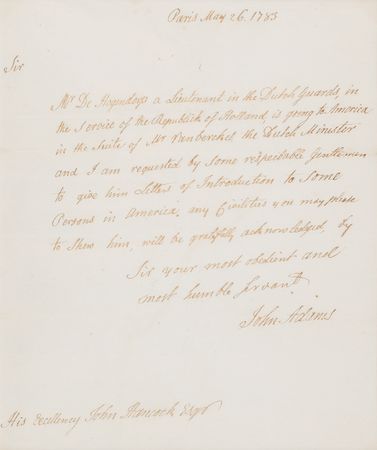 Paris May 26. 1783
Sir
Mr. De Hogendorp a Lieutenant in the Dutch Guards, in
the Service of the Republick of Holland, is going to America
in the Suite of Mr Vanberckel the Dutch Minister
and I am requested by Some respectable Gentlemen
to give him Letters of Introduction to Some
Persons in America, any Civilities you may please
to Shew him, will be gratefully acknowledged, by
Sir your most obedient and
most humble Servant
John Adams
His Excellency John Hancock Esqr